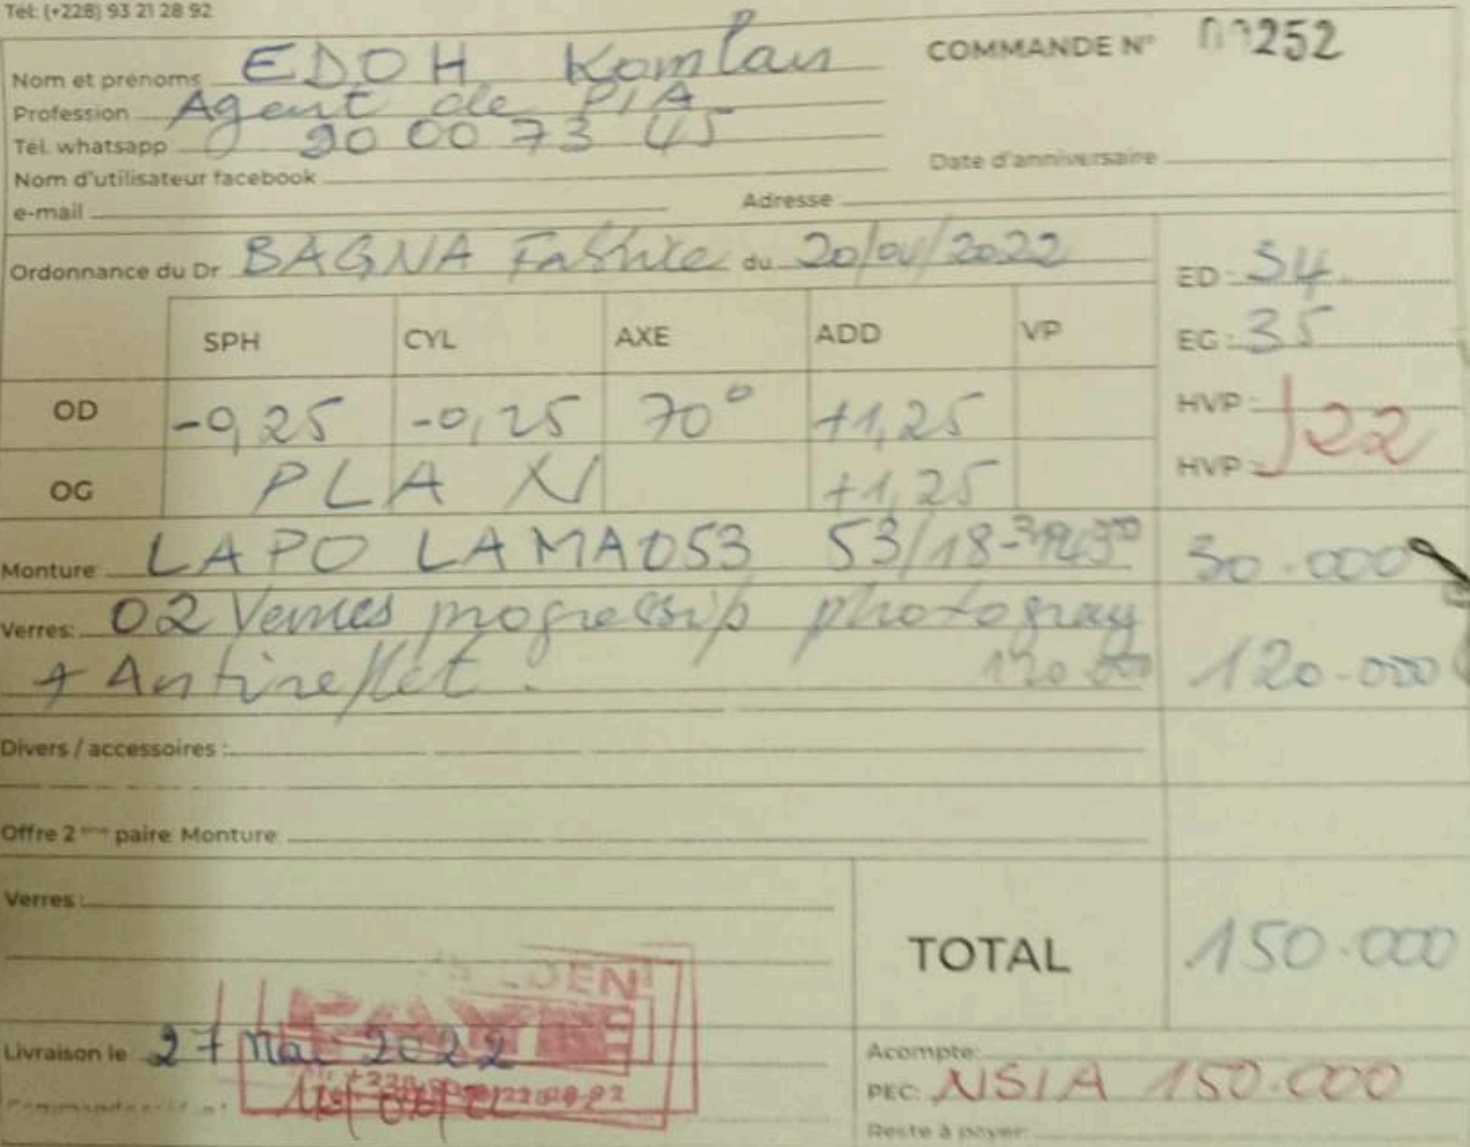 Tél: (+228) 93 21 28 92
COMMANDE N° 00252
Nom et prénoms EDOH Komlan
Profession Agent de PIA
Tél. whatsapp 90 00 73 45
Nom d'utilisateur facebook
Date d'anniversaire
e-mail Adresse
Ordonnance du Dr BAGNA Fabrice du 20/04/2022
ED: 34
EG: 35
SPH CYL AXE ADD VP
OD -0,25 -0,25 70° +1,25
HVP: 22
OG PLAN +1,25
HVP:
Monture LAPO LAMA053 53/18- 30.000
Verres: 02 Verres progressifs photogray
+ Antireflet. 120.000 120.000
Divers / accessoires :
Offre 2ème paire Monture
Verres:
TOTAL 150.000
PAYÉ
Livraison le 27 Mai 2022
Acompte:
PEC: NSIA 150.000
Reste à payer: